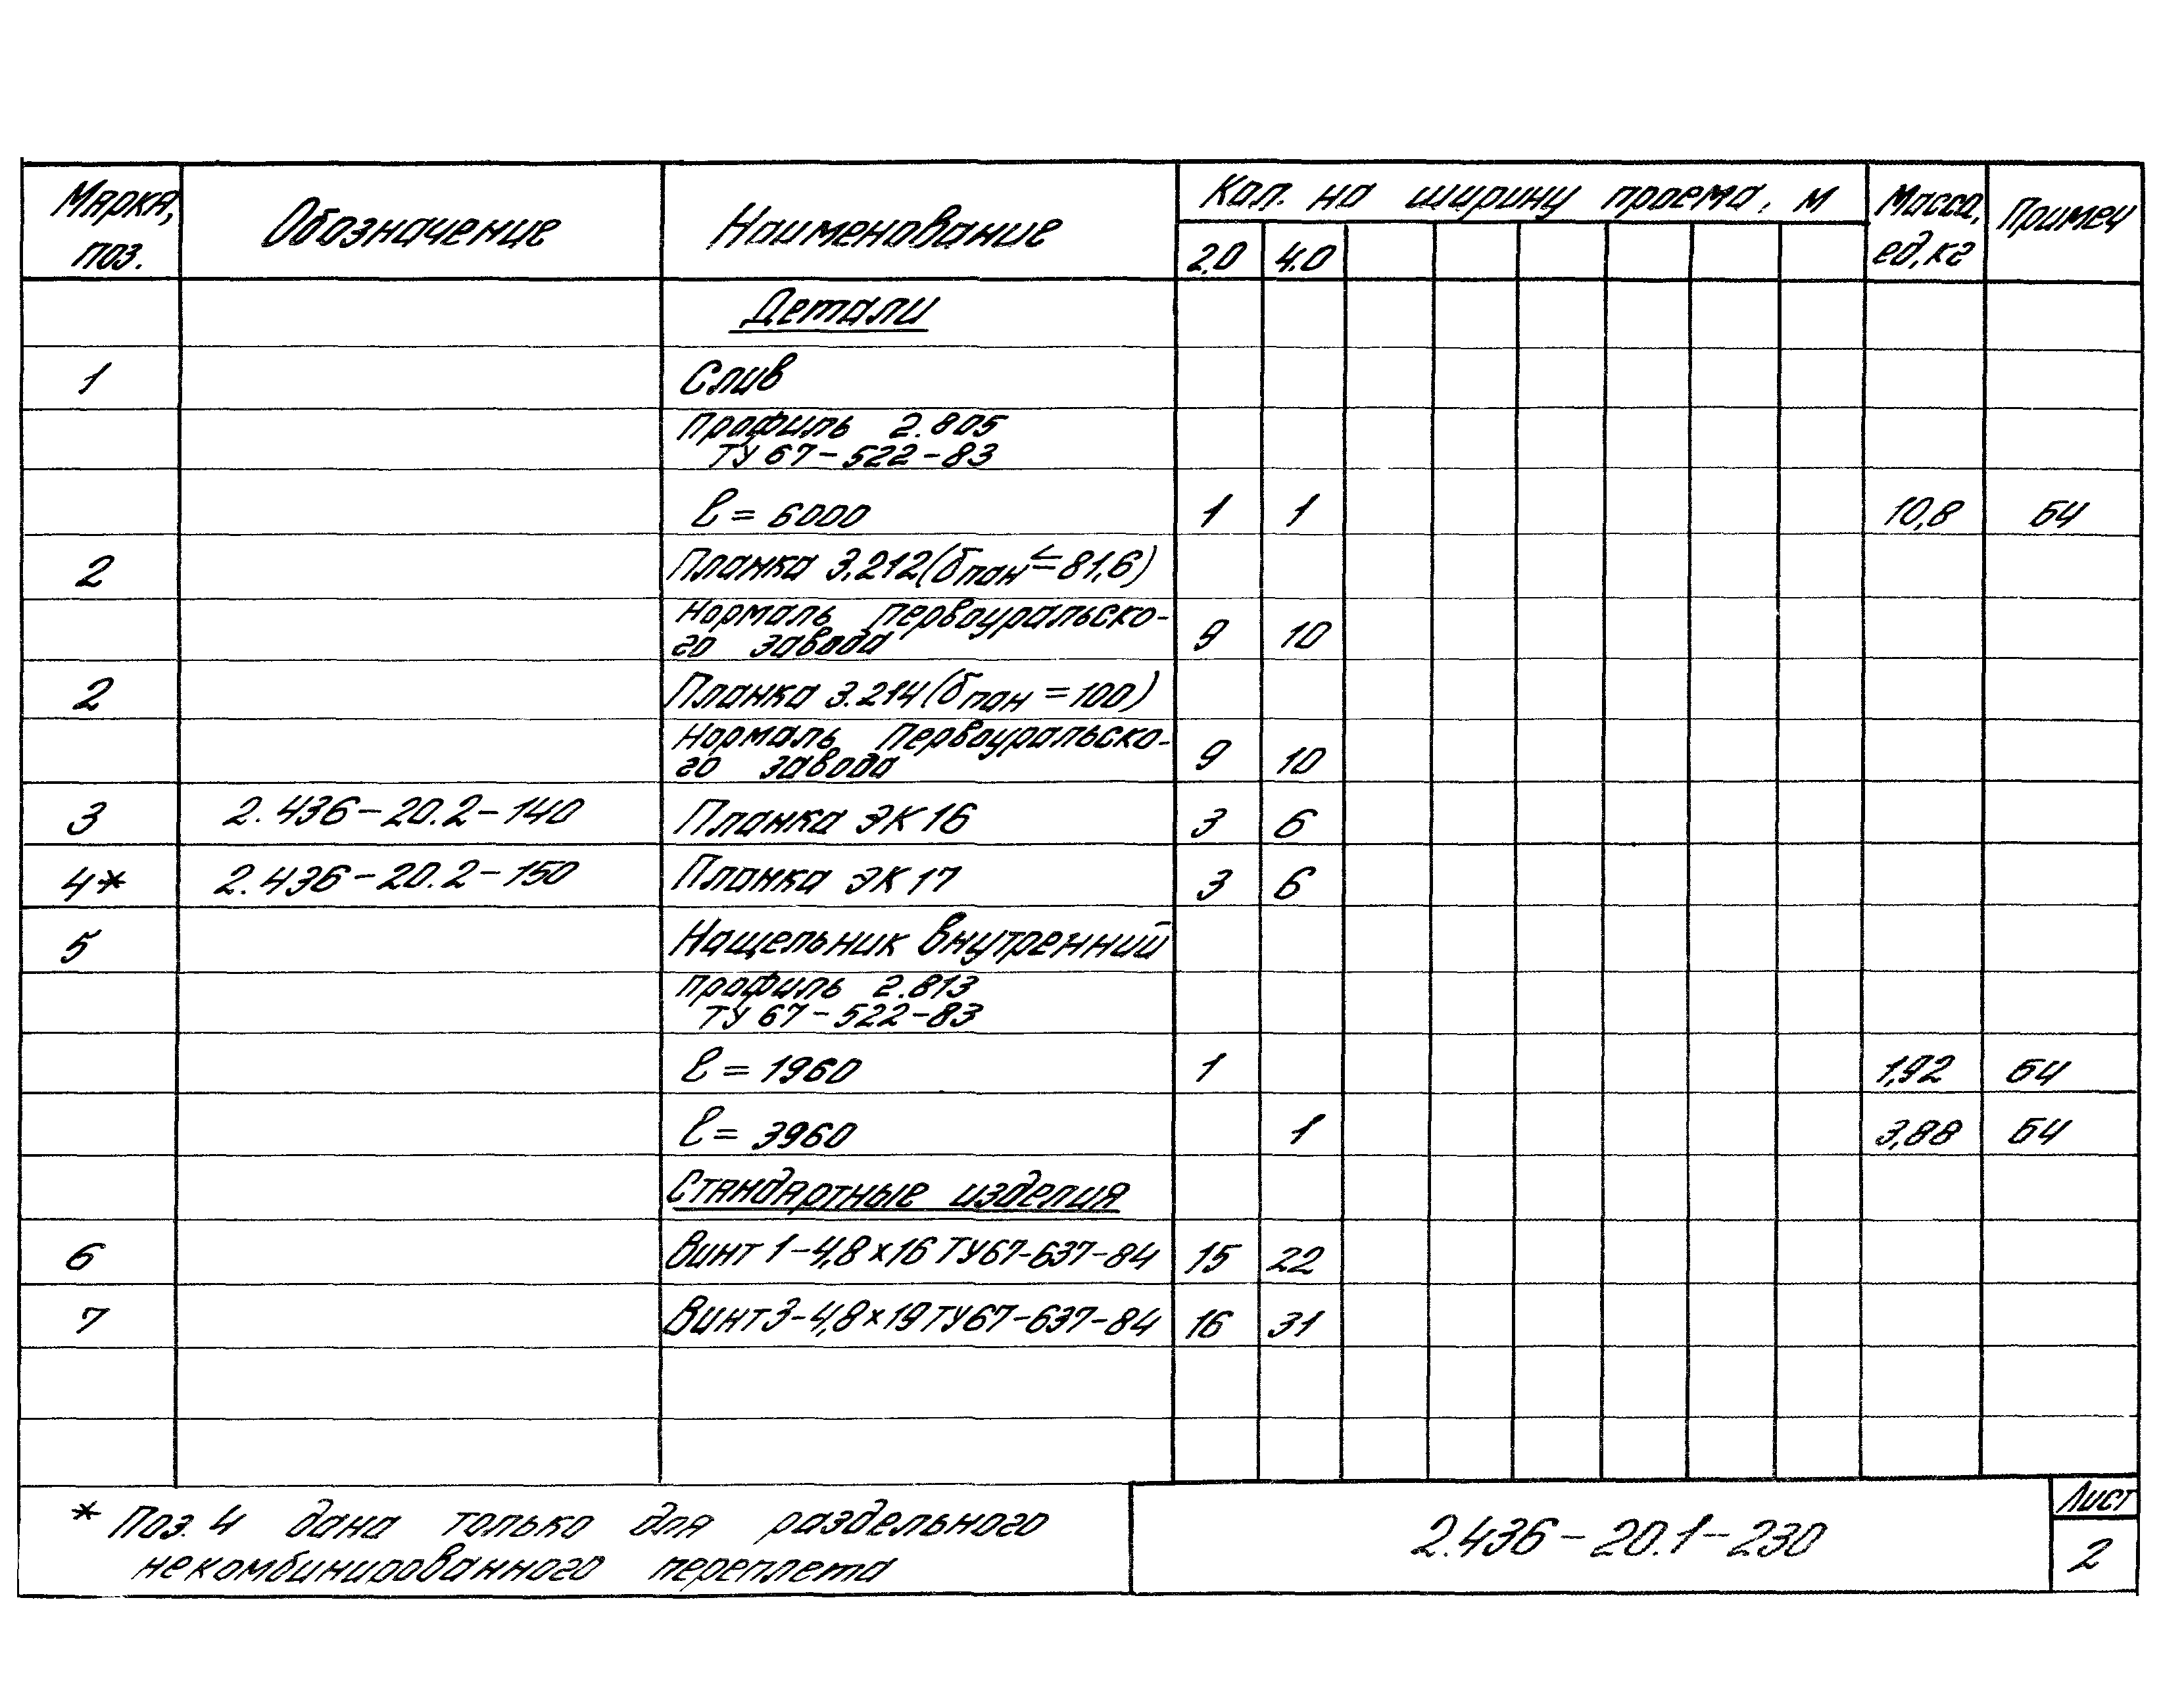 Марка, поз. Обозначение Наименование Кол. на ширину проема, м Масса, ед, кг Примеч
2,0 4.0
Детали
1 Слив
Профиль 2.805
ТУ 67-522-83
ℓ = 6000 1 1 10,8 БЧ
2 Планка 3.212 (δпан ≤ 81,6)
Нормаль первоуральско-
го завода 9 10
2 Планка 3.214 (δпан = 100)
Нормаль Первоуральско-
го завода 9 10
3 2.436-20.2-140 Планка ЭК16 3 6
4* 2.436-20.2-150 Планка ЭК17 3 6
5 Нащельник внутренний
профиль 2.813
ТУ 67-522-83
ℓ = 1960 1 1,92 БЧ
ℓ = 3960 1 3,88 БЧ
Стандартные изделия
6 Винт 1-4,8×16 ТУ67-637-84 15 22
7 Винт 3-4,8×19 ТУ67-637-84 16 31
* Поз. 4 дана только для раздельного
некомбинированного переплета
2.436-20.1-230
Лист
2